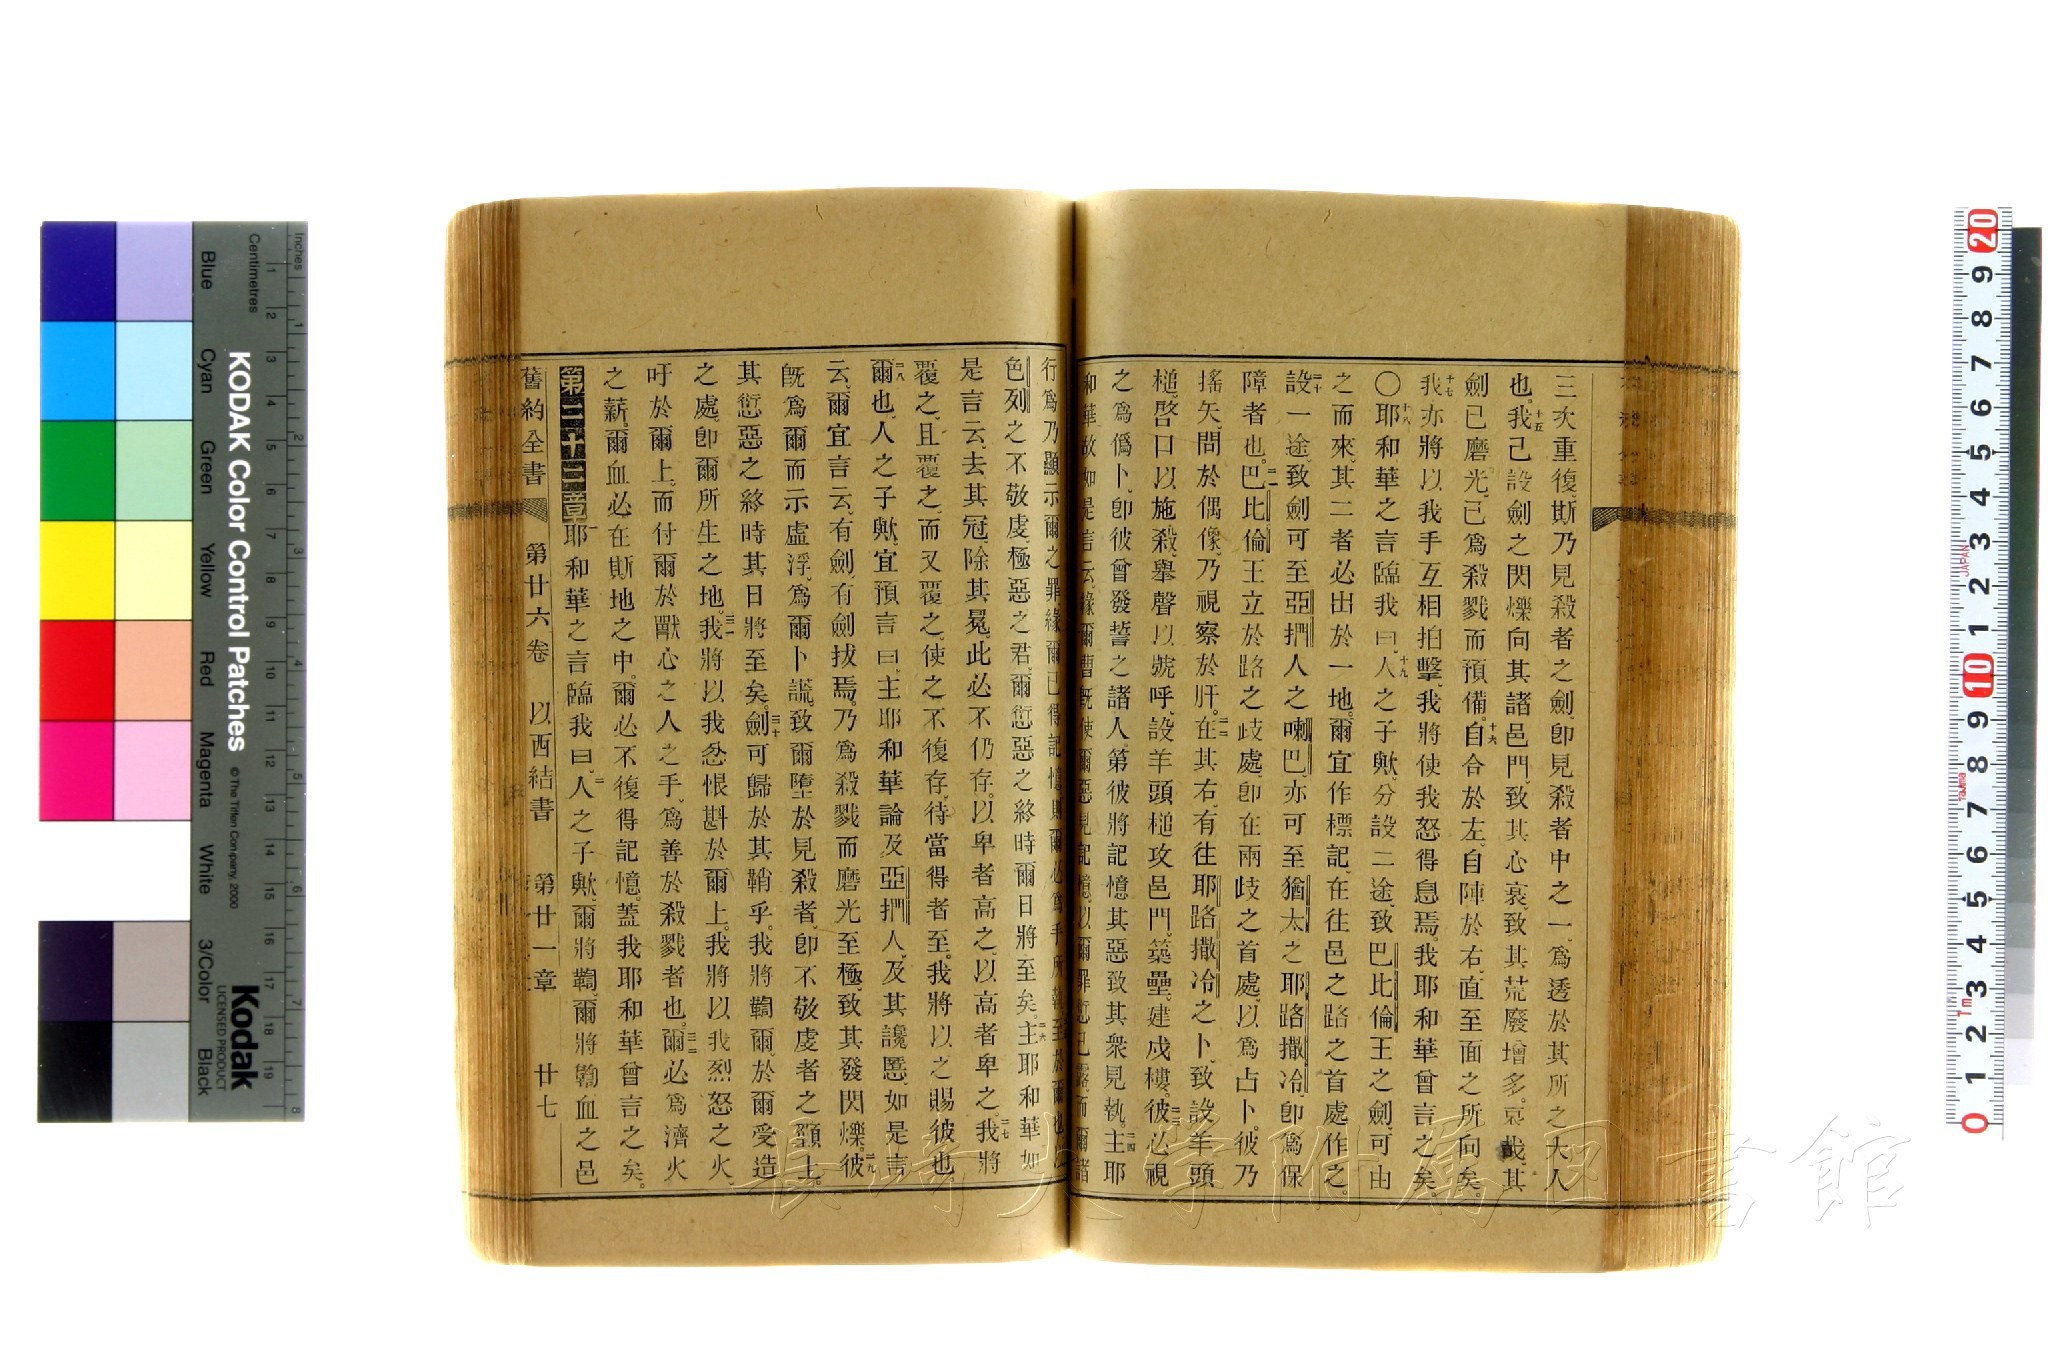 三次重復、斯乃見殺者之劍、卽見殺者中之一、爲透於其所之大人
也。十五我己設劍之閃爍向其諸邑門、致其心哀、致其荒廢增多。哀哉、其
劍已磨光、已爲殺戮而預備。十六自合於左、自陣於右、直至面之所向矣。
十七我亦將以我手互相拍擊、我將使我怒得息焉。我耶和華曾言之矣。
〇十八耶和華之言臨我曰、十九人之子歟、分設二途、致巴比倫王之劍、可由
之而來。其二者必出於一地。爾宜作標記、在往邑之路之首處作之。
二十設一途、致劍可至亞捫人之喇巴、亦可至猶太之耶路撒冷、卽爲保
障者也。二一巴比倫王立於路之歧處、卽在兩歧之首處、以爲占卜。彼乃
搖矢、問於偶像、乃視察於肝。二二在其右、有往耶路撒冷之卜、致設羊頭
槌、啓口以施殺、舉聲以號呼、設羊頭槌攻邑門、築壘、建戍樓。二三彼必視
之爲僞卜、卽彼曾發誓之諸人、第彼將記憶其惡、致其衆見執。二四主耶
和華故如是言云、緣爾曹旣使爾惡見記憶、以爾罪愆已露、而爾諸
行爲乃顯示爾之罪、緣爾已得記憶、則爾必爲手所執。至於爾也、以
色列之不敬虔、極惡之君、爾愆惡之終時、爾日將至矣。二六主耶和華如
是言云、去其冠、除其冕、此必不仍存、以卑者高之、以高者卑之。二七我將
覆之、且覆之、而又覆之、使之不復存、待當得者至。我將以之賜彼也。
二八爾也、人之子歟、宜預言曰、主耶和華論及亞捫人、及其讒慝、如是言
云、爾宜言云、有劍、有劍拔焉。乃爲殺戮而磨光至極、致其發閃爍。二九彼
旣爲爾而示虛浮、爲爾卜謊、致爾墮於見殺者、卽不敬虔者之頸上。
其愆惡之終時、其日將至矣。三十劍可歸於其鞘乎。我將鞫爾、於爾受造
之處、卽爾所生之地。三一我將以我忿恨斟於爾上。我將以我烈怒之火、
吁於爾上。而付爾於獸心之人之手、爲善於殺戮者也。三二爾必爲濟火
之薪。爾血必在斯地之中。爾必不復得記憶。蓋我耶和華曾言之矣。
第二十二章一耶和華之言臨我曰、二人之子歟、爾將鞫、爾將鞫血之邑
舊約全書　第廿六卷　以西結書　第廿一章　廿七
長崎大学附属図書館
KODAK Color Control Patches
© The Tiffen Company, 2000
Kodak
LICENSED PRODUCT
Inches
Centimetres
1 2 3 4 5 6 7 8
1 2 3 4 5 6 7 8 9 10 11 12 13 14 15 16 17 18 19
Blue
Cyan
Green
Yellow
Red
Magenta
White
3/Color
Black
20 9 8 7 6 5 4 3 2 1 10 9 8 7 6 5 4 3 2 1 0
JAPAN
Tajima
7m